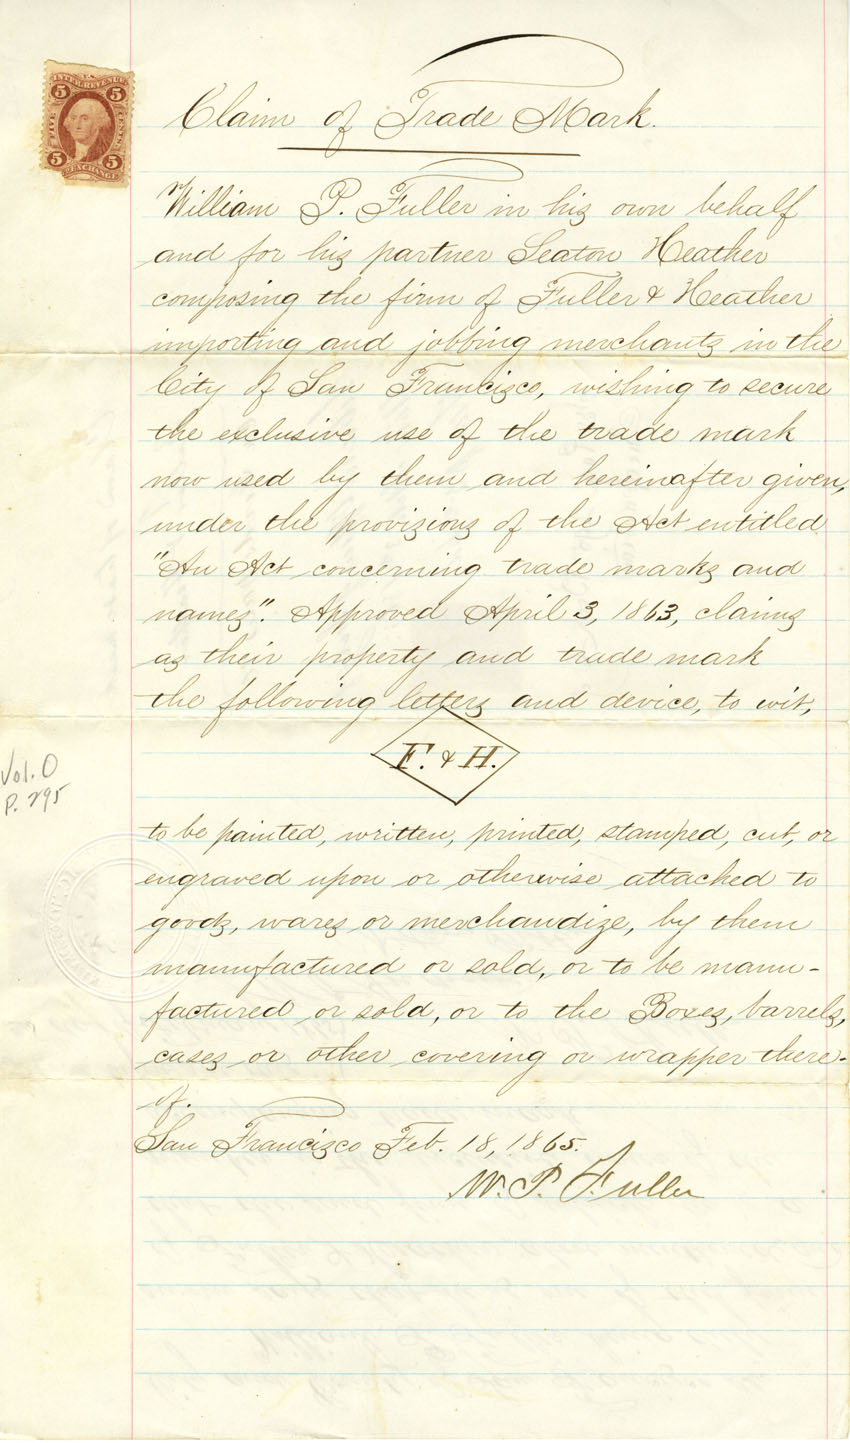 U.S.
INTER. REVENUE
5 5
FIVE CENTS
5 5
EXCHANGE
Claim of Trade Mark.
William P. Fuller in his own behalf
and for his partner Seaton Heather
composing the firm of Fuller & Heather
importing and jobbing merchants in the
City of San Francisco, wishing to secure
the exclusive use of the trade mark
now used by them and hereinafter given,
under the provisions of the Act entitled
"An Act concerning trade marks and
names". Approved April 3, 1863, claims
as their property and trade mark
the following letters and device, to wit,
F. & H.
Vol. O
P. 295
to be painted, written, printed, stamped, cut, or
engraved upon or otherwise attached to
goods, wares or merchandize, by them
manufactured or sold, or to be manu-
factured or sold, or to the Boxes, barrels,
cases or other covering or wrapper there-
of.
San Francisco Feb. 18, 1865.
W. P. Fuller